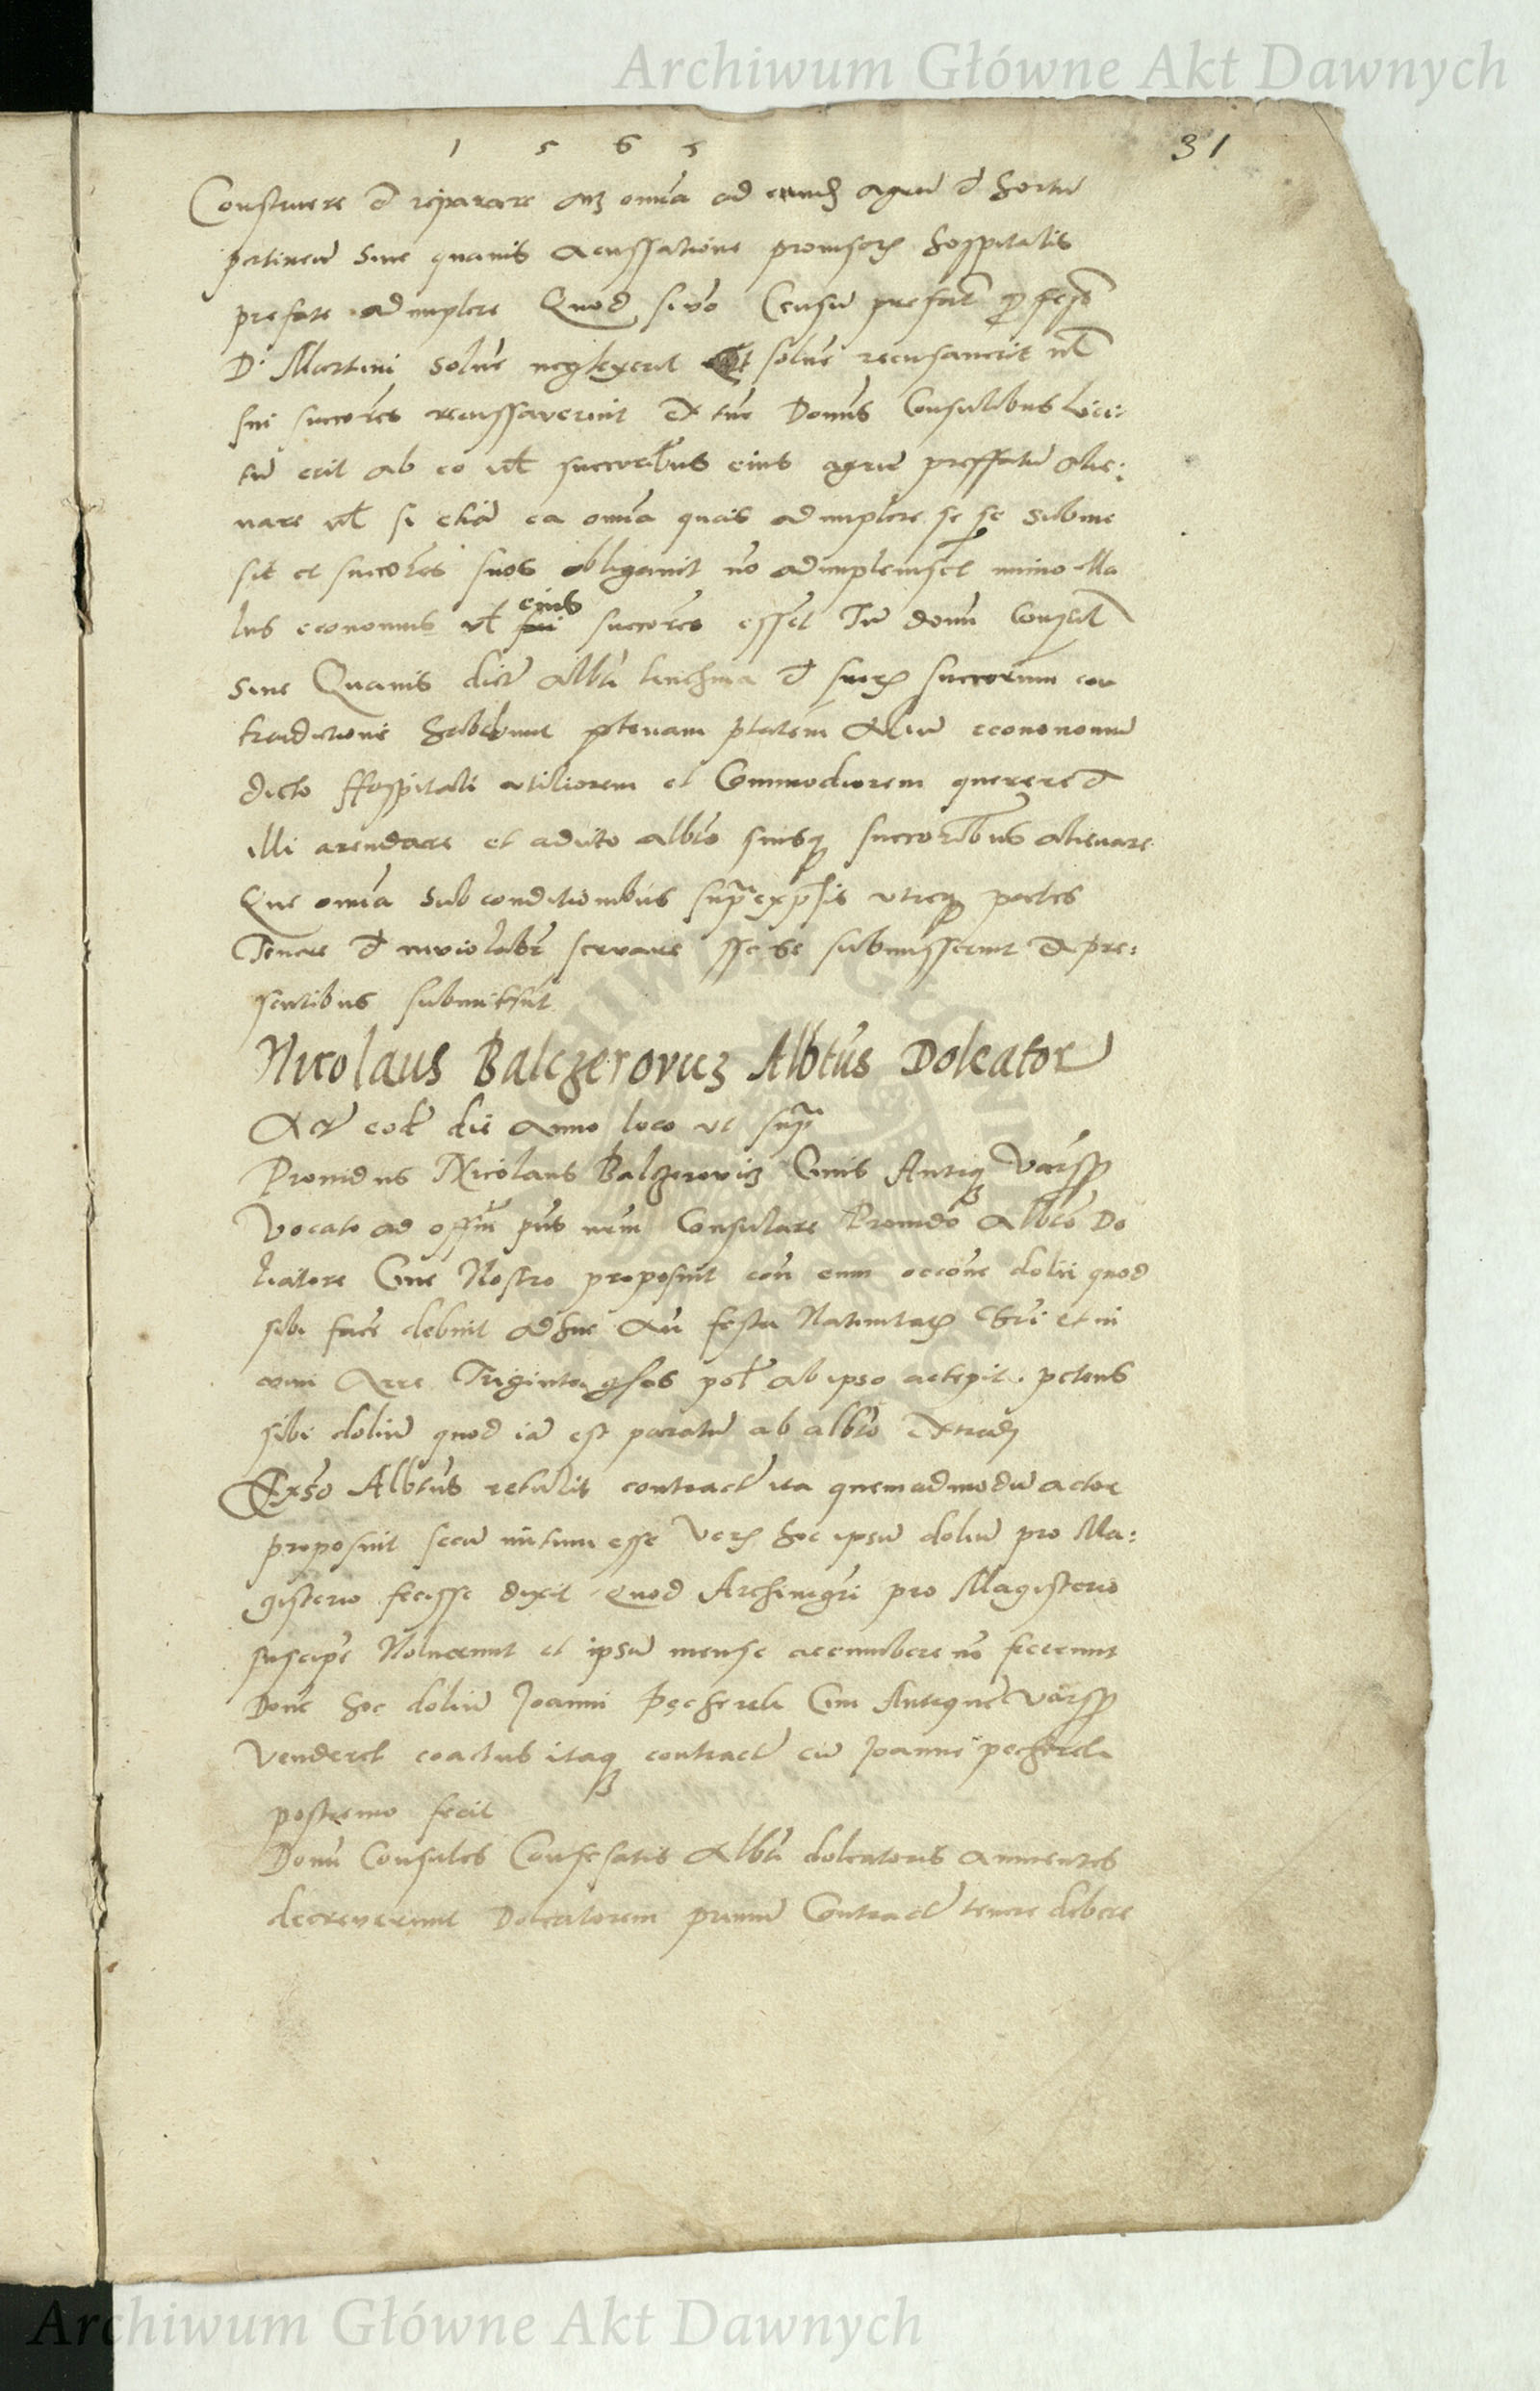 Archiwum Główne Akt Dawnych
1 5 6 5
31
Construere et reparare omnia ad agrum et hortum
pertinen sine quavis provisorum hospitalis
prefate adimplere Quod si vero Censum prefat p festo
D. Martini solve neglexerit solve recusaverit vel
sui succores recussaverint Ex tunc Domis Consulibus lici:
tum erit ab eo vel succoribus eius agrum preffatum alie:
nare vel si etiam ea omia quais adimplere se se submi
sit et succores suos obligavit no adimplevisset immo ma
lus economus vel eius succores esset Tum domi Consul
sine Quavis dict Albti et suor succorum con
tradictione habebunt potestatem Alium economum
dicto Hospitali utiliorem et Commodiorem querere et
illi arendare et a dicto albto suisq succoribus alienare
Que omia sub conditionibus supra expssis utreq partes
Tenere et inviolabr servare sse se submisserunt Et pre:
sentibus submittunt
Nicolaus Balczerovicz Albtus Doleator
Act eod die anno loco ut supra
Providus Nicolaus Balczerovicz Civis Antiq Varss
Vocato ad offm pns nrm Consulare Provido Albto Do
liatore Cive Nostro proposuit con eum occone dolii quod
sibi face debuit adhuc An festa Nativitatis Chri et in
vim Arre Triginta gssos pol ab ipso accepit. petens
sibi dolium quod iam est paratum ab albto Extradi
Exso Albtus retulit contract ita quemadmodum actor
proposuit secum initum esse Verum hoc ipsum dolium pro Ma:
gisterio fecisse dixit quod Archimgri pro Magisterio
suscipe Noluerunt et ipsum mense accumbere no fecerunt
Donec hoc dolium Joanni Pechereli Civi Antique Varss
Venderet coactus itaq contract cum Joanne pecherele
postremo fecit
Domi Consules Confesatis Albti doleatoris annuentes
decreverunt Doleatorem primum Contract tenere debere
Archiwum Główne Akt Dawnych